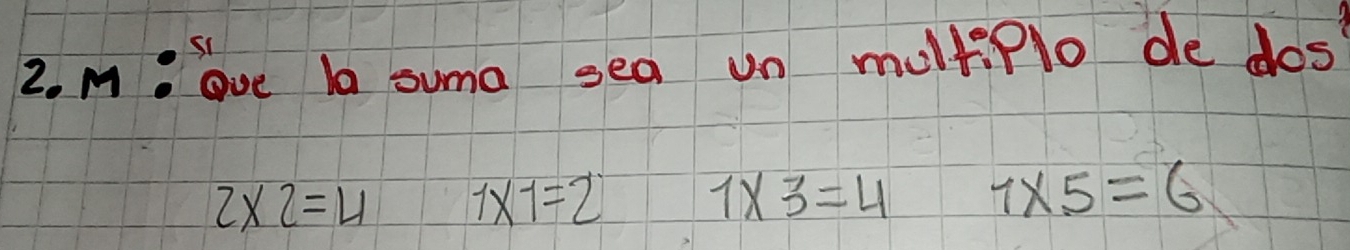 si
2. M : Que la suma sea un multiplo de dos
2x2=4 1x1=2 1x3=4 1x5=6